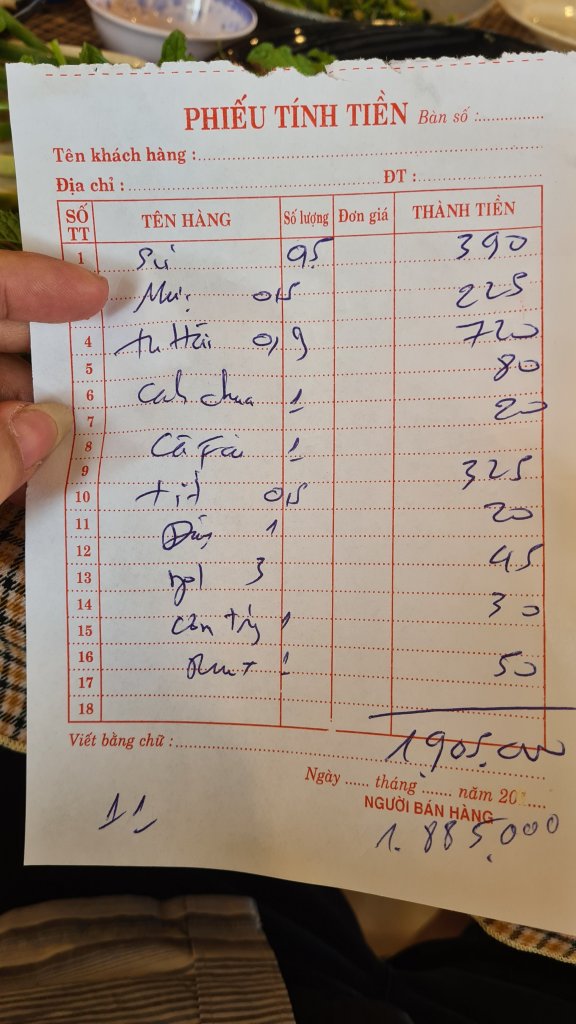 PHIẾU TÍNH TIỀN Bàn số :
Tên khách hàng :
Địa chỉ : ĐT :
SỐ TT TÊN HÀNG Số lượng Đơn giá THÀNH TIỀN
1 95 390
Mực 0,5 225
4 tu Hài 0,9 720
5 80
6 canh chua 1
7 20
8 Cà 1
9 325
10 0,5
11 20
12 1
13 3 45
14 30
15 1
16 50
17 1
18
1.905.000
Viết bằng chữ :
Ngày ...... tháng ....... năm 20
NGƯỜI BÁN HÀNG
11
1.885.000